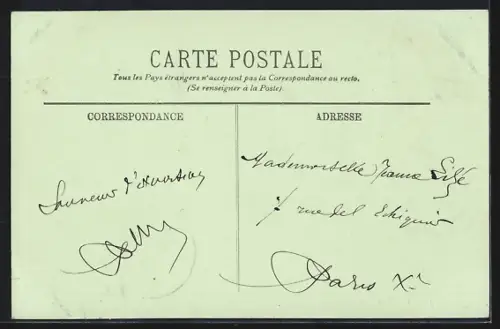 CARTE POSTALE
Tous les Pays étrangers n'acceptent pas la Correspondance au recto.
(Se renseigner à la Poste)
CORRESPONDANCE
ADRESSE
Souvenir d'
Mademoiselle Jeanne
7 rue de l Echiquier
Paris X.e